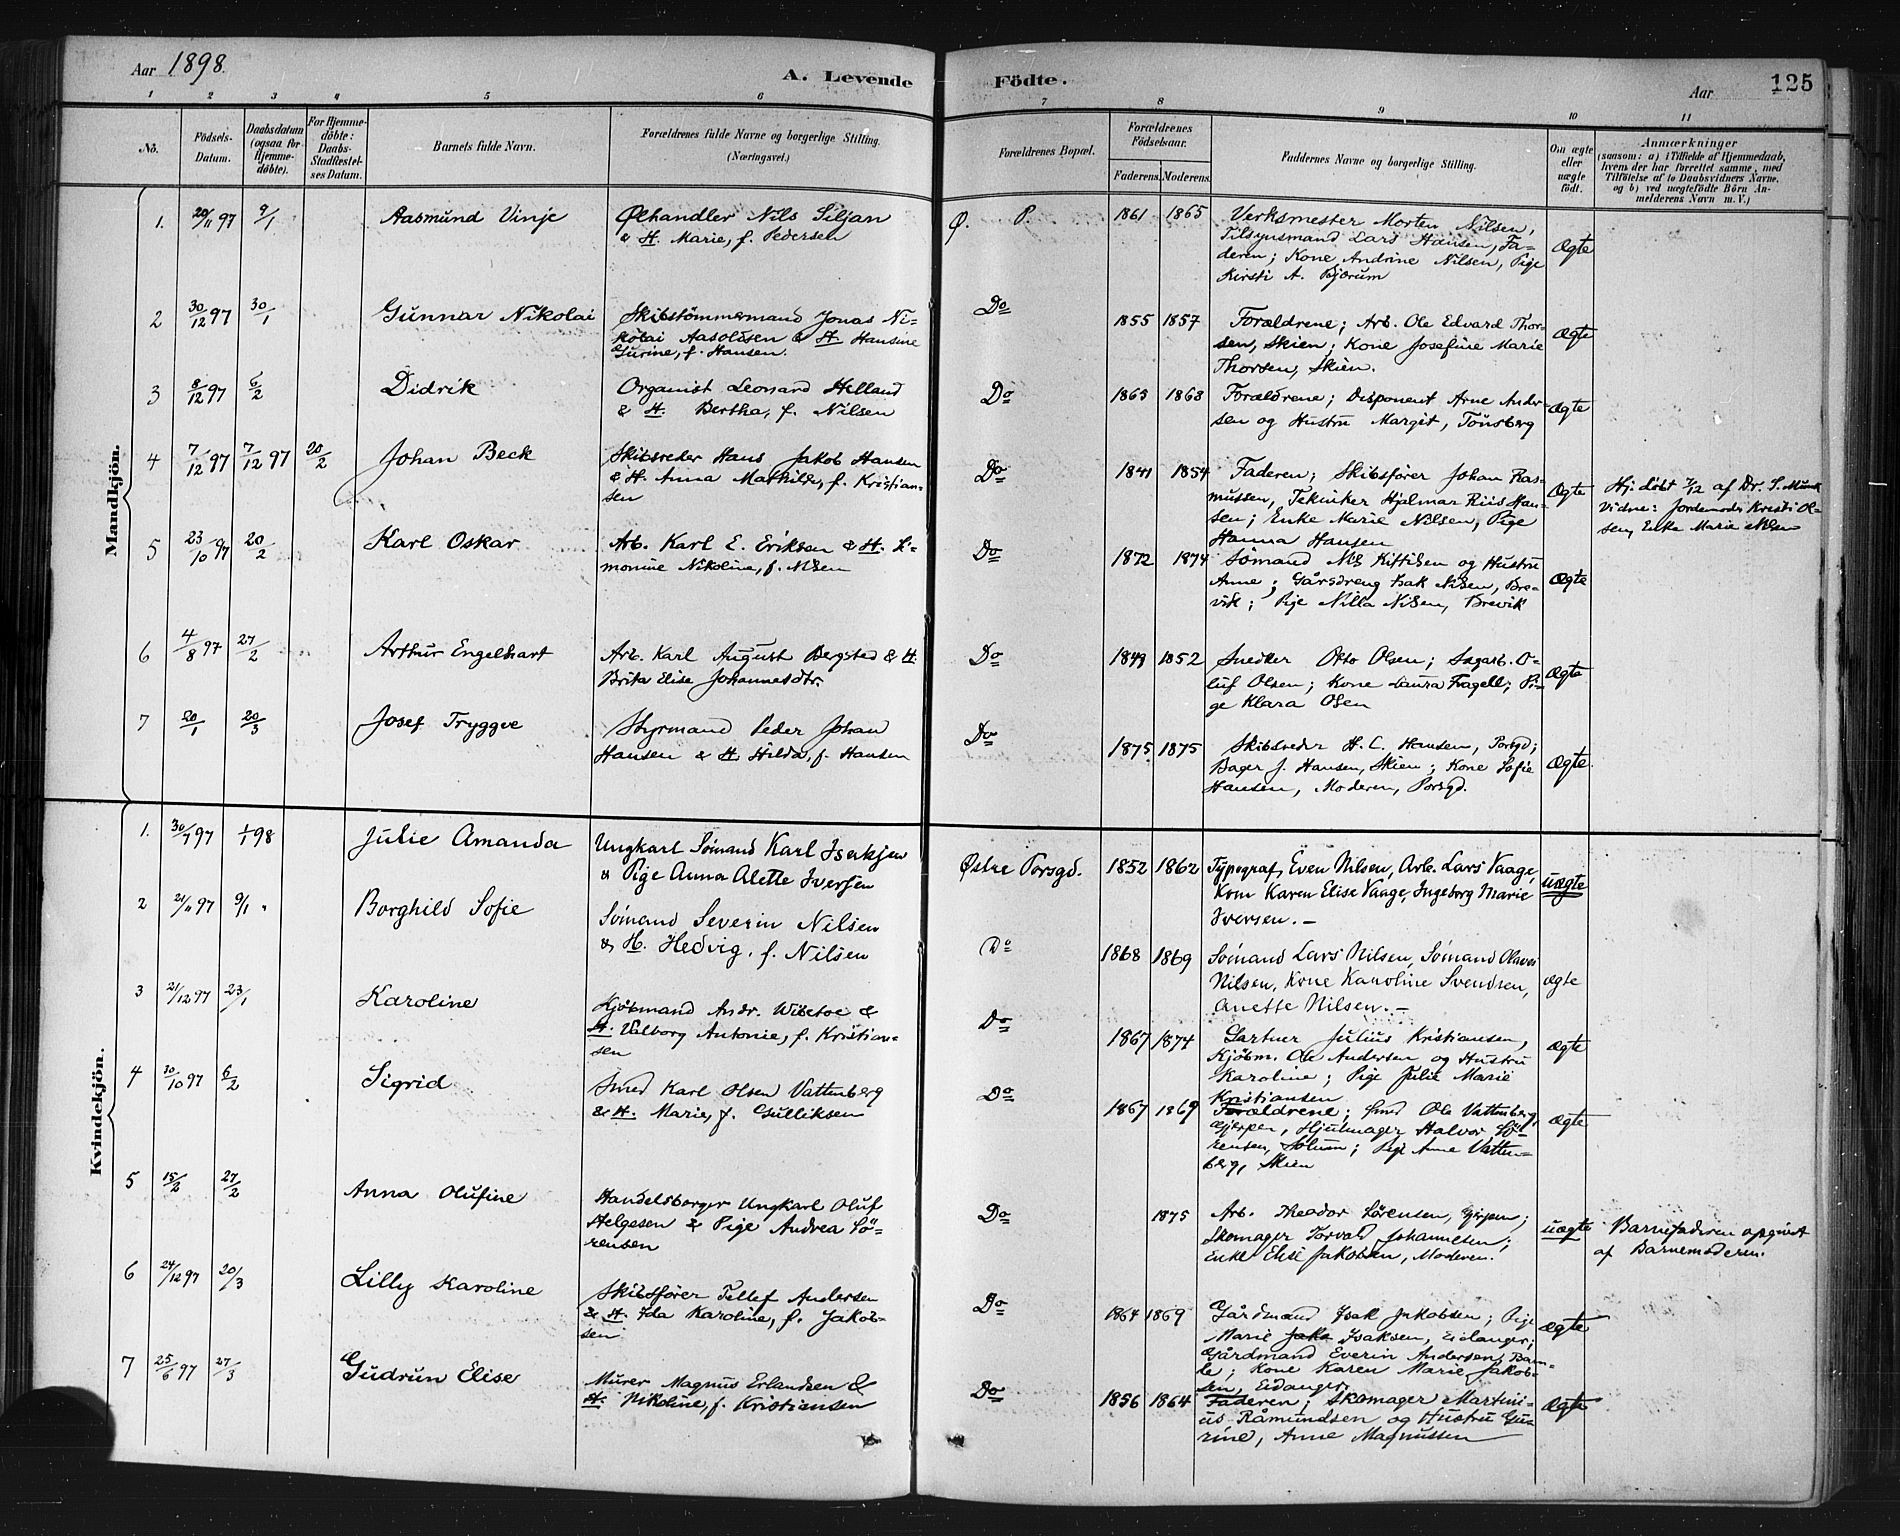 Aar 1898.
A. Levende Födte.
Aar 125
1 2 3 4 5 6 7 8 9 10 11
No.
Födsels-
Datum.
Daabsdatum
(ogsaa for
Hjemme-
döbte).
For Hjemme-
döbte:
Daabs-
Stadfæstel-
ses Datum.
Barnets fulde Navn.
Forældrenes fulde Navne og borgerlige Stilling.
(Næringsvei.)
Forældrenes Bopæl.
Forældrenes
Födselsaar.
Faderens. Moderens.
Faddernes Navne og borgerlige Stilling.
Om ægte
eller
uægte
födt.
Anmærkninger
(saasom: a) i Tilfælde af Hjemmedaab,
hvem der har forrettet samme, med
Tilföielse af to Daabsvidners Navne,
og b) ved uægtefödte Börn An-
melderens Navn m. V.)
Mandkjön.
1. 20/11 97 9/1 Aasmund Vinje
Ølhandler Nils Siljan
& H. Marie, f. Pedersen
Ø. P. 1861 1865
Verksmester Morten Nilsen,
Tilsynsmand Lars Hansen, Fa-
deren; Kone Andrine Nilsen, Pige
Kirsti A. Bjørum
Ægte
2 30/12 97 30/1 Gunnar Nikolai
Skibstömmermand Jonas Ni-
kolai Aasoldsen & H. Hansine
Gurine, f. Hansen.
Do 1855 1857
Forældrene; Arb. Ole Edvard Thor-
sen, Skien; Kone Josefine Marie
Thorsen, Skien.
Ægte
3 8/12 97 6/2 Didrik
Organist Leonard Helland
& H. Bertha, f. Nilsen
Do 1865 1868
Forældrene; Disponent Arne Ander-
sen og Hustru Margit, Tönsberg
Ægte
4 7/12 97 7/12 97 20/2 Johan Beck
Skibsreder Hans Jakob Hansen
& H. Anna Mathilde, f. Kristian-
sen
Do 1841 1854
Faderen; Skibsförer Johan Ras-
mussen, Tekniker Hjalmar Riis Han-
sen; Enke Marie Nilsen, Pige
Hanna Hansen
Ægte
Hj. döbt 7/12 af Dr. S. Munk
Vidne: Jordemoder Kristi Ol-
sen, Enke Marie Nilsen
5 23/10 97 20/2 Karl Oskar
Arb. Karl E. Eriksen & H. Si-
monine Nikoline, f. Nilsen
Do 1872 1874
Sömand Nils Kittilsen og Hustru
Anne; Gårsdreng Isak Nilsen, Bre-
vik; Pige Nilla Nilsen, Brevik
Ægte
6 4/8 97 27/2 Arthur Engelhart
Arb. Karl August Bergsted & H.
Brita Elise Johannesdtr.
Do 1849 1852
Snedker Otto Olsen; Sagarb. O-
luf Olsen; Kone Laura Fragell; Pi-
ge Klara Olsen
Ægte
7 20/1 20/3 Josef Tryggve
Styrmand Peder Johan
Hansen & H. Hilda, f. Hansen
Do 1875 1875
Skibsreder H. C. Hansen, Porsgd;
Bager J. Hansen, Skien; Kone Sofie
Hansen, Moderen, Porsgd.
Ægte.
Kvindekjön.
1. 30/7 97 1/1 98 Julie Amanda
Ungkarl Sömand Karl Isaksen
& Pige Anna Alette Iversen
Østre Porsgd. 1852 1862
Typograf Even Nilsen, Arb. Lars Vaage,
Kone Karen Elise Vaage, Ingeborg Marie
Iversen. –
uægte
2 21/11 97 9/1 " Borghild Sofie
Sömand Severin Nilsen
& H. Hedvig, f. Nilsen
Do 1868 1869
Sömand Lars Nilsen, Sömand Olaves
Nilsen, Kone Karoline Svendsen,
Anette Nilsen. –
ægte
3 21/12 97 23/1 Karoline
Kjöbmand Andr. Wibetoe &
H. Valborg Antonie, f. Kristian-
sen
Do 1867 1874
Gartner Julius Kristiansen,
Kjöbm. Ole Andersen og Hustru
Karoline; Pige Julie Marie
Kristiansen
ægte
4 30/10 97 6/2 Sigrid
Smed Karl Olsen Vattenberg
& H. Marie, f. Gulliksen
Do 1867 1869
Forældrene; Smed Ole Vattenberg,
Gjerpen, Hjulmager Halvor Sö-
rensen, Solum; Pige Anne Vatten-
berg, Skien
ægte
5 15/2 27/2 Anna Olufine
Handelsborger Ungkarl Oluf
Helgesen & Pige Andrea Sö-
rensen
Do 1875
Arb. Theodor Sörensen, Gjerpen;
Skomager Torvald Johannesen;
Enke Elise Jakobsen, Moderen.
uægte
Barnefaderen opgivet
af Barnemoderen.
6 24/12 97 20/3 Lilly Karoline
Skibsförer Tellef Andersen
& H. Ida Karoline, f. Jakob-
sen
Do 1864 1869
Gårdmand Isak Jakobsen; Pige
Marie Jako Isaksen, Eidanger;
Gårdmand Everin Andersen, Bam-
le; Kone Karen Marie Jakob-
sen, Eidanger.
ægte
7 25/6 97 27/3 Gudrun Elise
Murer Magnus Erlandsen &
H. Nikoline, f. Kristiansen
Do 1856 1864
Faderen; Skomager Martini-
us Råmundsen og Hustru Gu-
rine, Anne Magnussen
ægte